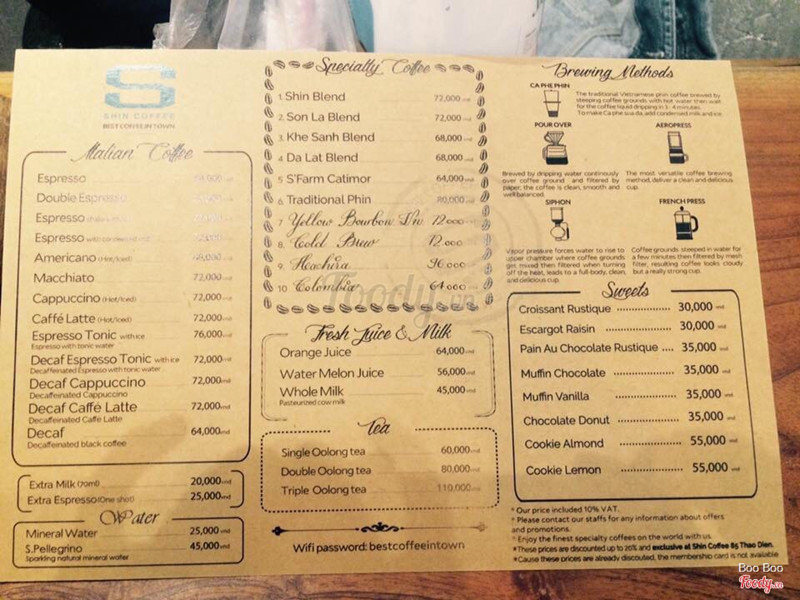 SHIN COFFEE
BEST COFFEE IN TOWN
Italian Coffee
Espresso
Double Espresso
Espresso
Espresso
Americano (Hot/Iced)
Macchiato 72,000 vnd
Cappuccino (Hot/Iced) 72,000 vnd
Caffé Latte (Hot/Iced) 72,000 vnd
Espresso Tonic with ice 76,000 vnd
Espresso with tonic water
Decaf Espresso Tonic with ice 72,000 vnd
Decaffeinated Espresso with tonic water
Decaf Cappuccino 72,000 vnd
Decaffeinated Cappuccino
Decaf Caffé Latte 72,000 vnd
Decaffeinated Caffé Latte
Decaf 64,000 vnd
Decaffeinated black coffee
Extra Milk (70ml) 20,000 vnd
Extra Espresso (One shot) 25,000 vnd
Water
Mineral Water 25,000 vnd
S.Pellegrino 45,000 vnd
Sparkling natural mineral water
Specialty Coffee
1. Shin Blend 72,000 vnd
2. Son La Blend 72,000 vnd
3. Khe Sanh Blend 68,000 vnd
4. Da Lat Blend 68,000 vnd
5. S'Farm Catimor 64,000 vnd
6. Traditional Phin
7. Yellow Bourbon
8. Cold Brew
9. Hachira
10. Colombia
Fresh Juice & Milk
Orange Juice 64,000 vnd
Water Melon Juice 56,000 vnd
Whole Milk 45,000 vnd
Pasteurized cow milk
Tea
Single Oolong tea 60,000 vnd
Double Oolong tea 80,000 vnd
Triple Oolong tea 110,000 vnd
Wifi password: bestcoffeeintown
Brewing Methods
CA PHE PHIN
The traditional Vietnamese phin coffee brewed by
steeping coffee grounds with hot water then wait
for the coffee liquid dripping in 3 - 4 minutes.
To make Ca phe sua da, add condensed milk and ice.
POUR OVER
Brewed by dripping water continously
over coffee ground and filtered by
paper, the coffee is clean, smooth and
well balanced.
AEROPRESS
The most versatile coffee brewing
method, deliver a clean and delicious
cup.
SIPHON
Vapor pressure forces water to rise to
upper chamber where coffee grounds
get mixed then filtered when turning
off the heat, leads to a full-body, clean,
and delicious cup.
FRENCH PRESS
Coffee grounds steeped in water for
a few minutes then filtered by mesh
filter, resulting coffee looks cloudy
but a really strong cup.
Sweets
Croissant Rustique .......... 30,000 vnd
Escargot Raisin .......... 30,000 vnd
Pain Au Chocolate Rustique .... 35,000 vnd
Muffin Chocolate .......... 35,000 vnd
Muffin Vanilla .......... 35,000 vnd
Chocolate Donut .......... 35,000 vnd
Cookie Almond .......... 55,000 vnd
Cookie Lemon .......... 55,000 vnd
* Our price included 10% VAT.
* Please contact our staffs for any information about offers
and promotions.
* Enjoy the finest specialty coffees on the world with us.
*These prices are discounted up to 20% and exclusive at Shin Coffee 85 Thao Dien.
*Cause these prices are already discouted, the membership card is not available
Foody.vn
Boo Boo
Foody.vn